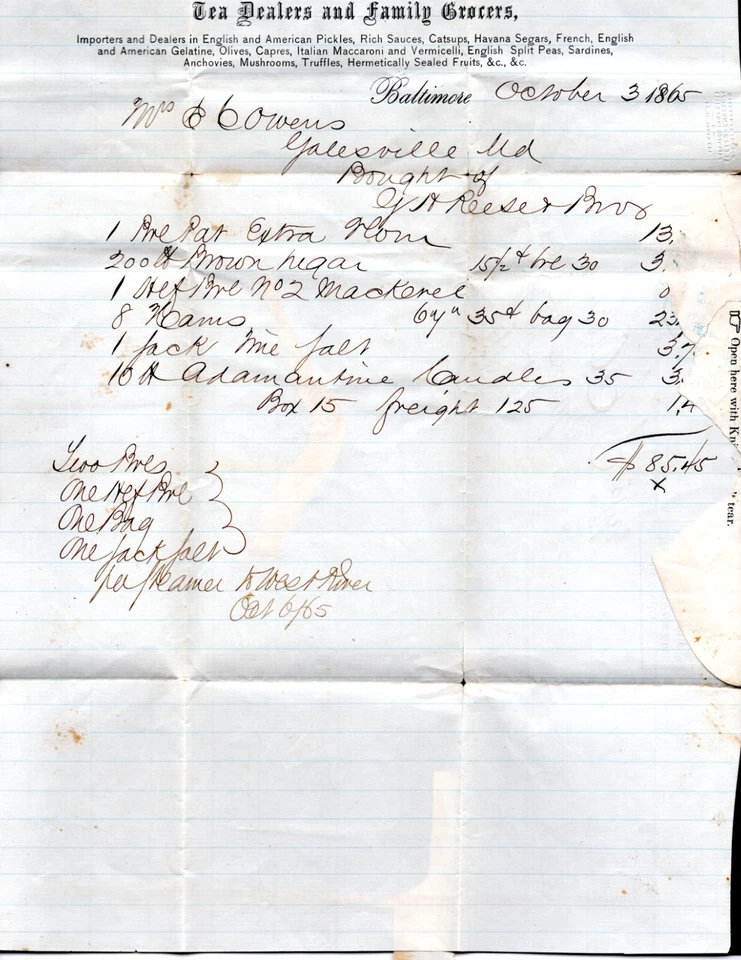 Tea Dealers and Family Grocers,
Importers and Dealers in English and American Pickles, Rich Sauces, Catsups, Havana Segars, French, English
and American Gelatine, Olives, Capres, Italian Maccaroni and Vermicelli, English Split Peas, Sardines,
Anchovies, Mushrooms, Truffles, Hermetically Sealed Fruits, &c., &c.
Baltimore October 3 1865
Mrs E C Owens
Galesville Md
Bought of
G H Reese & Bros
1 Bre Pat Extra Flour 13.
200 lb Brown Sugar 15½ ¢ bre 30 3.
1 Hef Bre No 2 Mackerel 0
8 Hams 35 ¢ bag 30 23.
1 Sack fine Salt 3.7
10 lb Adamantine Candles 35 3.
Box 15 freight 125 1.4
$ 85.45
x
Two Bres
One Hef Bre
One Bag
One Sack Salt
per Steamer to West River
Oct 6/65
Open here with
tear.